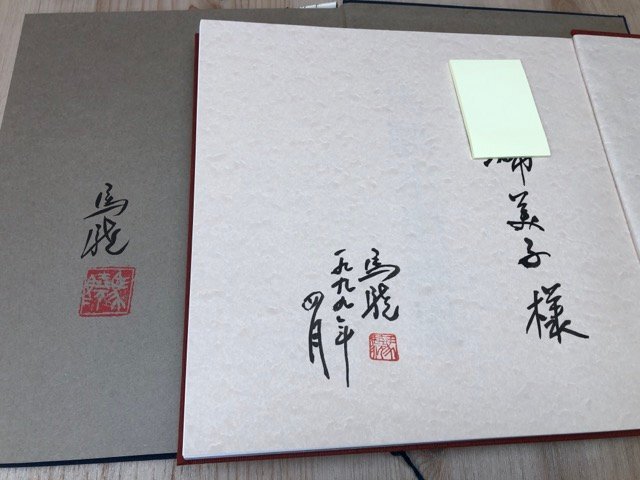 馬驍
美子様
馬驍
一九九九年
四月